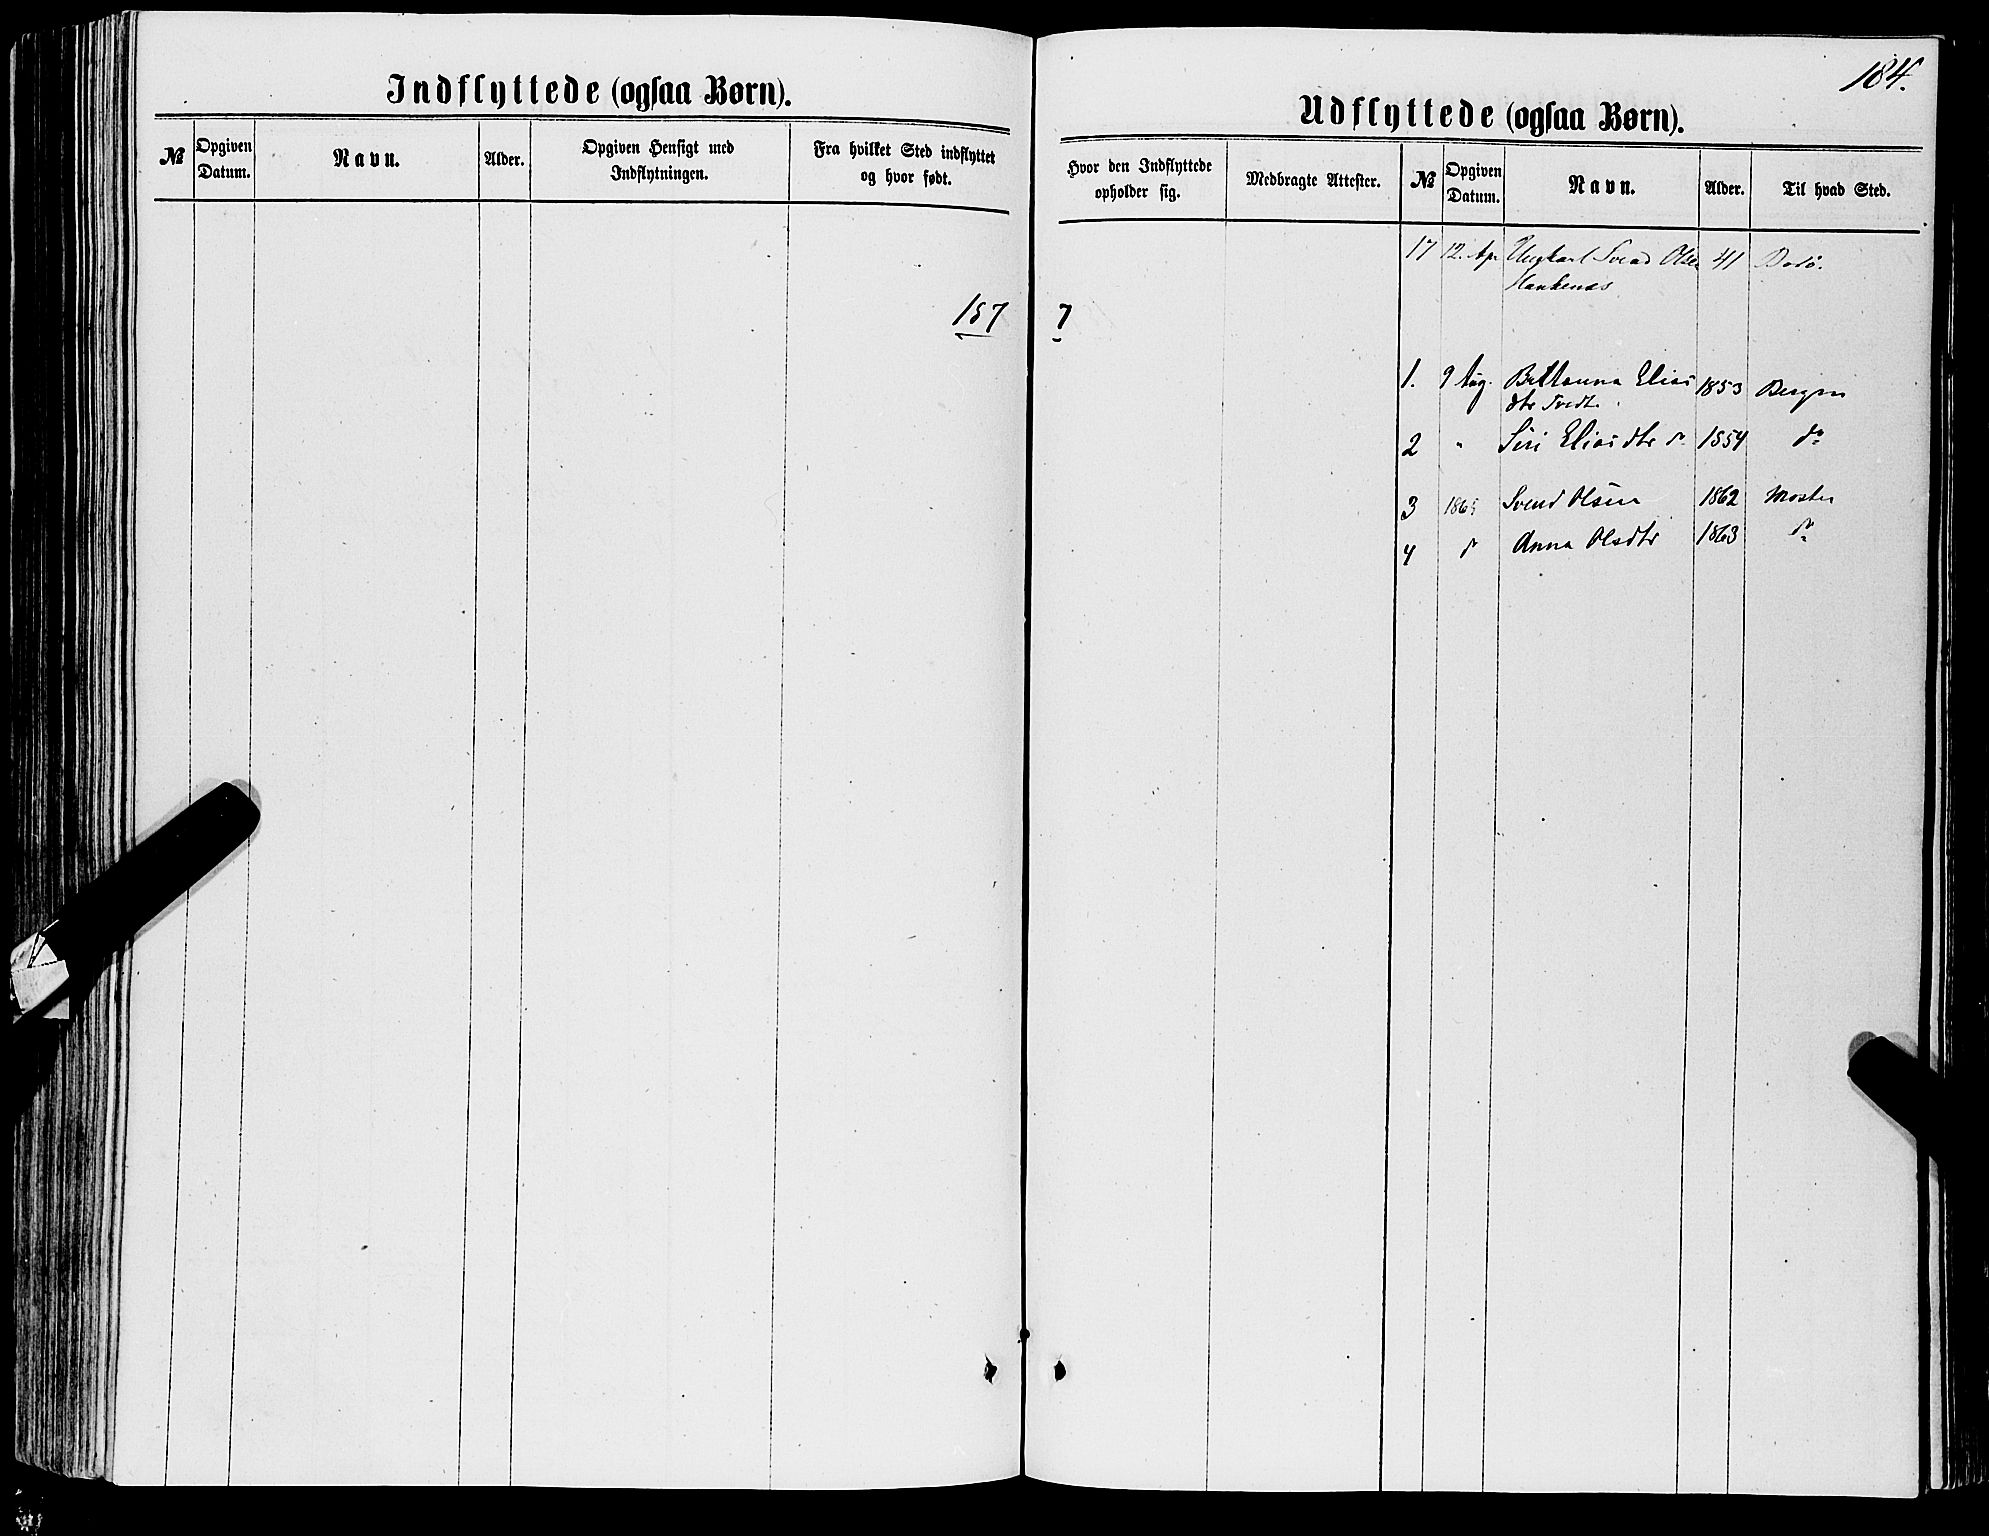 Indflyttede (ogsaa Børn).
№ Opgiven Datum. Navn. Alder. Opgiven Hensigt med Indflytningen. Fra hvilket Sted indflyttet og hvor født.
187
184.
Udflyttede (ogsaa Børn).
Hvor den Indflyttede opholder sig. Medbragte Attester. № Opgiven Datum. Navn. Alder. Til hvad Sted.
17 12. Ap Ungkarl Svend Olsen 41 Bodö.
7
1. 9 Aug. Elias 1853 Bergen
dtr Tvedt.
2 " Siri Eliasdtr do 1854 do
3 186 Svend Olsen 1862 Moster
4 do Anna Olsdtr 1863 do